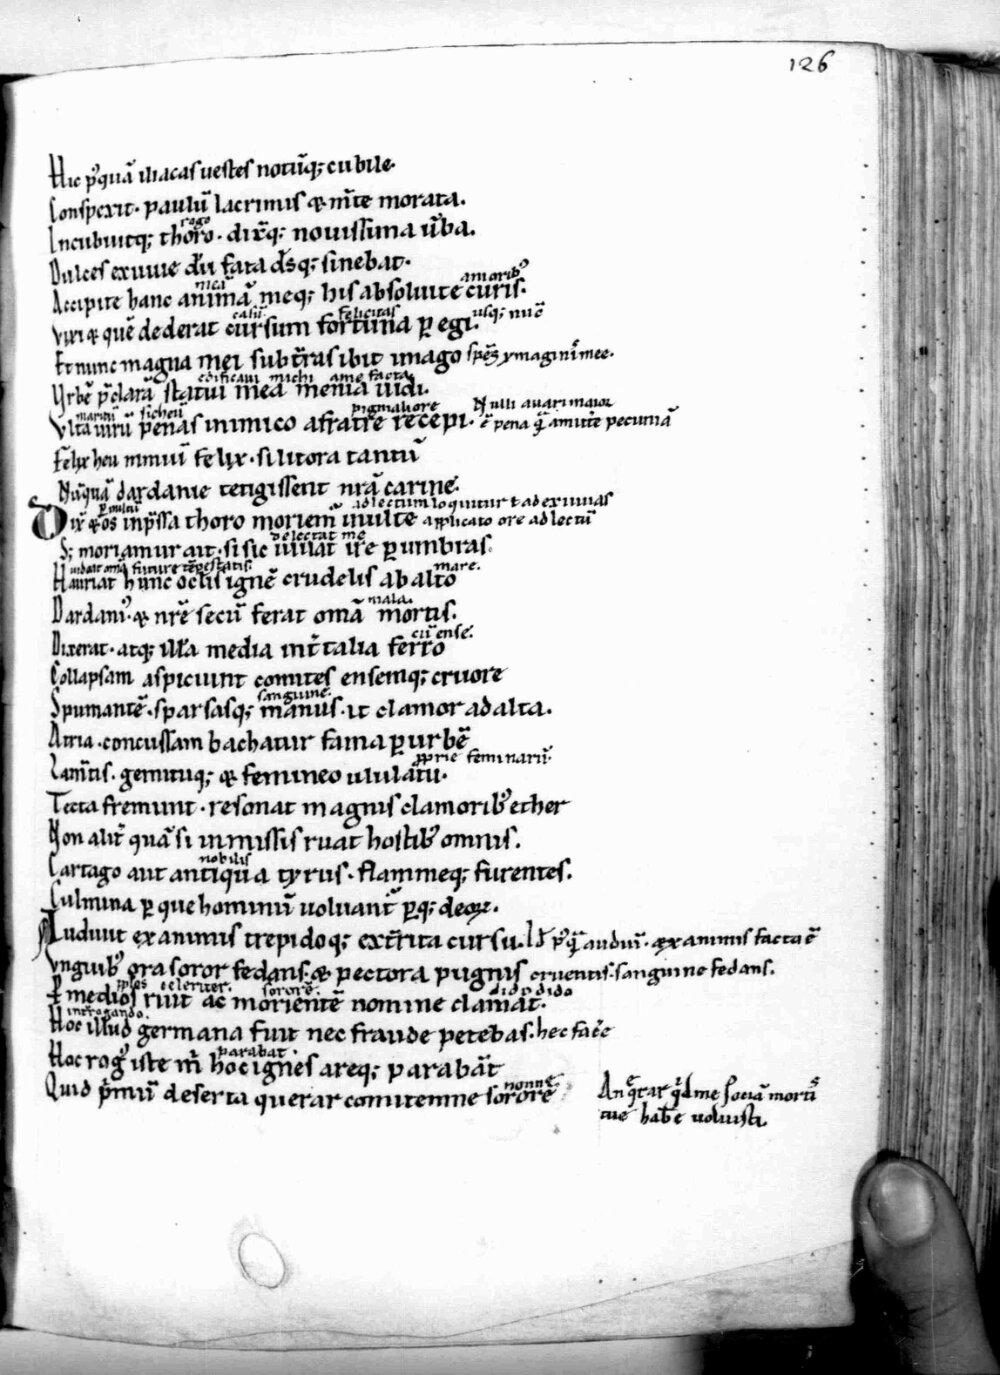 126
Hic p᷒quā iliacas uestes notūq; cubile.
Conspexit. paulū lacrimis & m̄te morata.
rogo
Incubuitq; thoro. dix̄q; nouissima ūba.
Dulces exuuie dū fata ds̄q; sinebat.
mea amorib᷒
Accipite hanc animā meq; his absoluite curis.
felicitas usq; nūc
Vixi & quē dederat cursum fortuna p egi.
Et nunc magna mei sub t̄ras ibit imago
edificaui michi a me facta
Vrbē p̄clarā statui mea menia uidi.
maritū sicheū pigmalione Nulli auari maior
Vlta uirū penas inimico a fratre recepi. ē pena q̄ amitt̄e pecuniā
Felix heu nimiū felix. si litora tantū
Nūquā dardanie tetigissent nr̄a carine.
ad lectum loquitur t ad exuuias
Dix̄ & os inp̄ssa thoro moriem̄ inulte applicato ore ad lectū
delectat me
S; moriamur ait. si sic iuuat ire p umbras.
mare.
Hauriat hunc oclīs ignē crudelis ab alto
mala
Dardan᷒. & nr̄e secū ferat omā mortis.
cū ense.
Dixerat. atq; illā media int̄ talia ferro
Collapsam aspiciunt comites ensemq; cruore
sanguine.
Spumantē. sparsasq; manus. it clamor ad alta.
Atria. concussam bachatur fama p urbē
pprie feminarū.
Lam̄tis. gemituq; & femineo ululatu.
Tecta fremunt. resonat magnis clamorib᷒ ether
Non alit̄ quā si inmissis ruat hostib᷒ omnis.
nobilis
Cartago aut antiqua tyrus. flammeq; furentes.
Culmina p que hominū uoluant̄ pq; deoꝝ.
Audiuit exanimis trepidoq; ext̄rita cursu. id᷒ p᷒q̄ audiuī. & exanimis facta ē
Vnguib᷒ ora soror fedans. & pectora pugnis cruentis. sanguine fedans.
ipsos celeriter. sororē. dido dido
P medios ruit ac morientē nomine clamat.
interrogando.
Hoc illud germana fuit nec fraude petebas. hec fac̄e
parabat.
Hoc rog᷒ iste m̄ hoc ignes areq; parabāt
nonne
Quid p̄mū deserta querar comitemne sororē
An q̄rar q̄d me sociā morti᷒
tue hab̄e uoluisti.